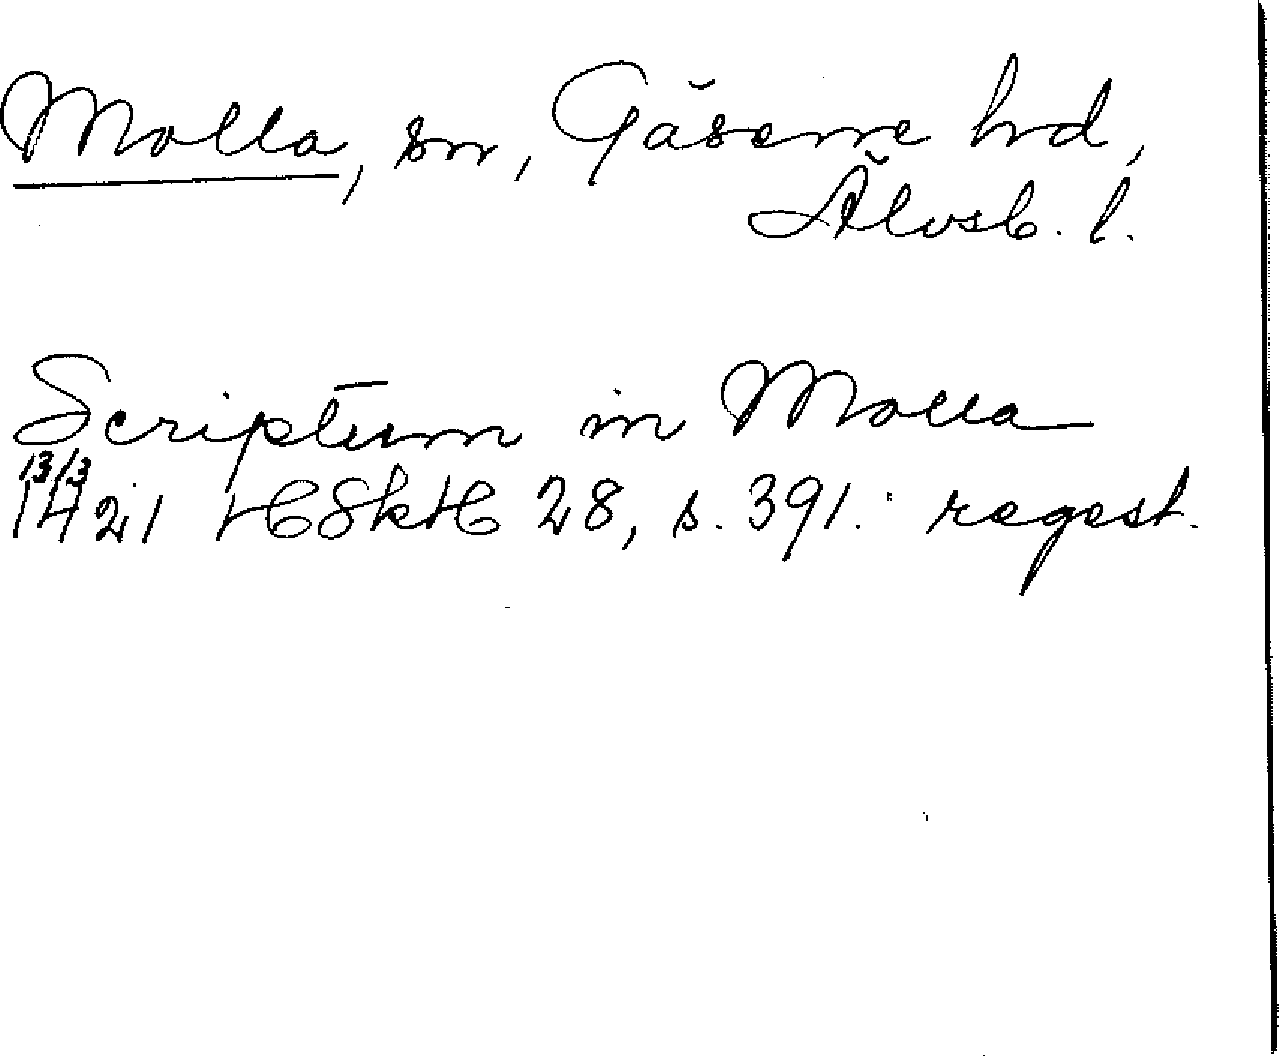 Molla, sn, Gäsene hrd,
Älvsb. l.
Scriptum in Molla
13/3
1421 HSkH 28, s. 391. regest.